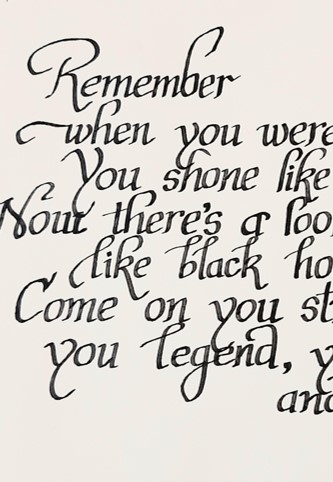 Remember
when you were
You shone like
Now there's a loo
like black ho
Come on you st
you legend, y
and